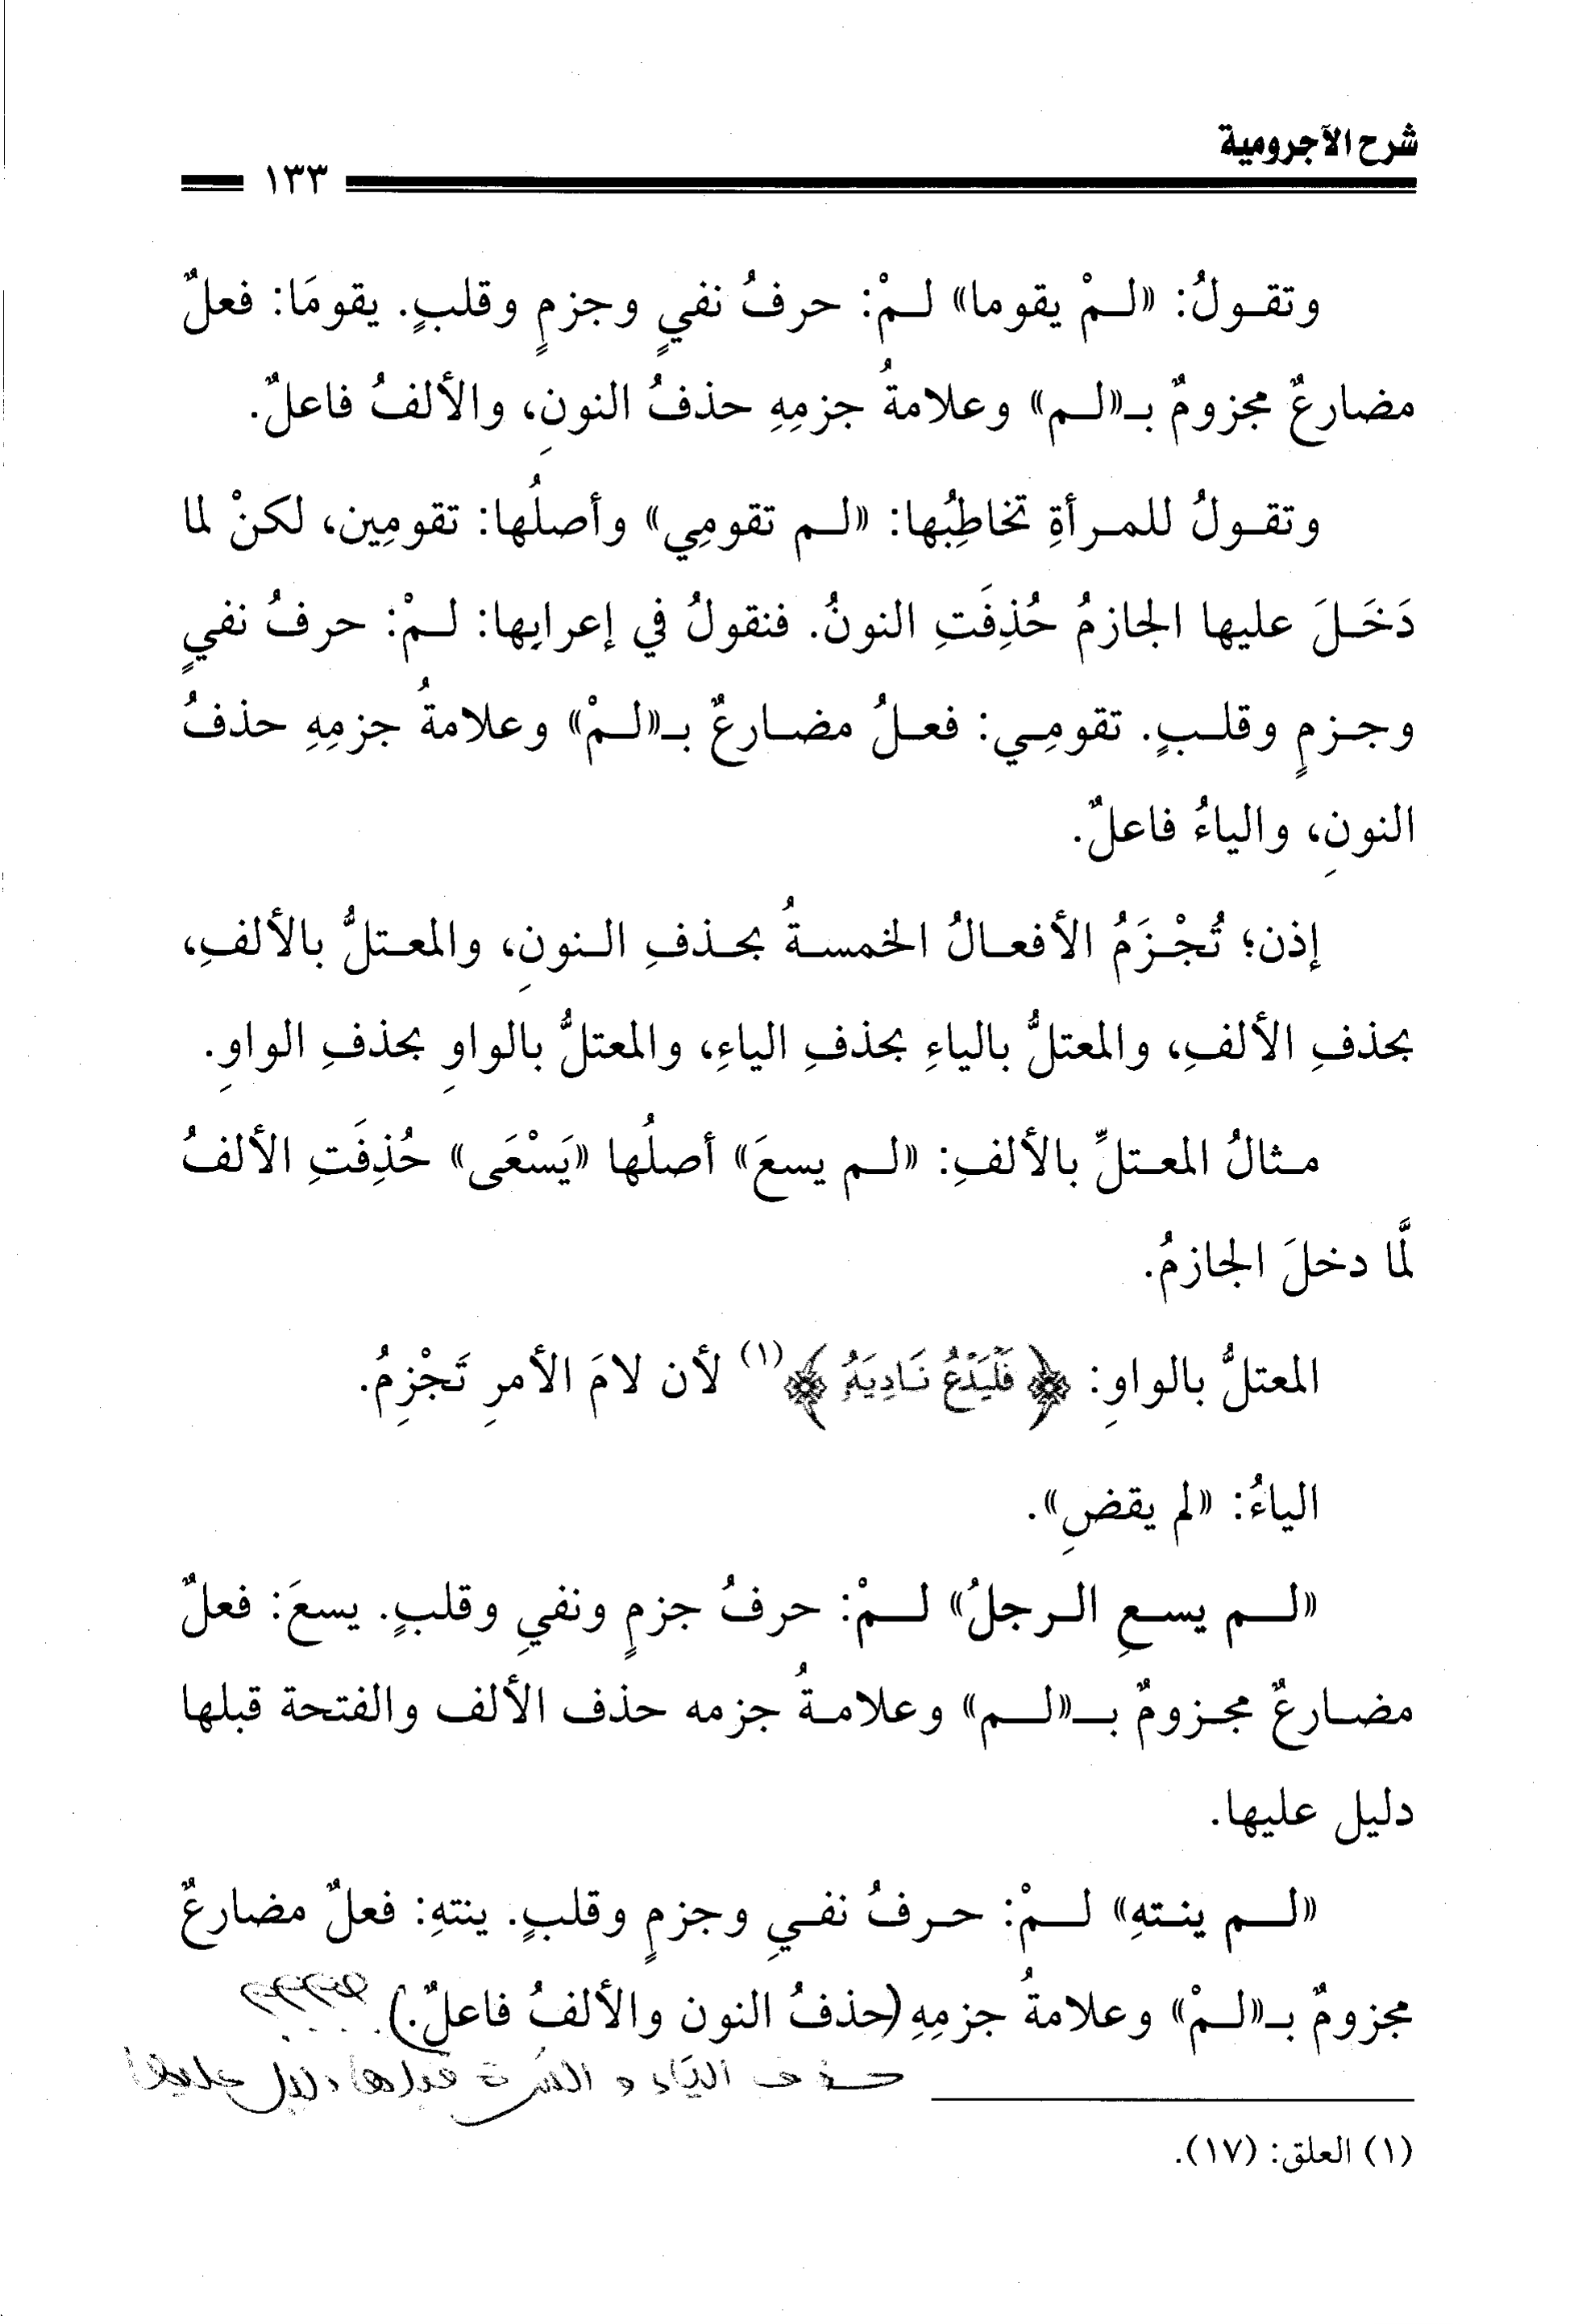 شرح الآجرومية
١٣٣
وتقولُ: «لمْ يقوما» لمْ: حرفُ نفيٍ وجزمٍ وقلبٍ. يقومَا: فعلٌ
مضارعٌ مجزومٌ بـ«لم» وعلامةُ جزمِهِ حذفُ النونِ، والألفُ فاعلٌ.
وتقولُ للمرأةِ تخاطِبُها: «لم تقومِي» وأصلُها: تقومِين، لكنْ لما
دَخَلَ عليها الجازمُ حُذِفَتِ النونُ. فنقولُ في إعرابِها: لمْ: حرفُ نفيٍ
وجزمٍ وقلبٍ. تقومِي: فعلُ مضارعٌ بـ«لمْ» وعلامةُ جزمِهِ حذفُ
النونِ، والياءُ فاعلٌ.
إذن؛ تُجْزَمُ الأفعالُ الخمسةُ بحذفِ النونِ، والمعتلُّ بالألفِ،
بحذفِ الألفِ، والمعتلُّ بالياءِ بحذفِ الياءِ، والمعتلُّ بالواوِ بحذفِ الواوِ.
مثالُ المعتلِّ بالألفِ: «لم يسعَ» أصلُها «يَسْعَى» حُذِفَتِ الألفُ
لَّما دخلَ الجازمُ.
المعتلُّ بالواوِ: ﴿فَلْيَدْعُ نَادِيَهُ﴾(١) لأن لامَ الأمرِ تَجْزِمُ.
الياءُ: «لم يقضِ».
«لم يسعِ الرجلُ» لمْ: حرفُ جزمٍ ونفيِ وقلبٍ. يسعَ: فعلٌ
مضارعٌ مجزومٌ بـ«لم» وعلامةُ جزمه حذف الألف والفتحة قبلها
دليل عليها.
«لم ينتهِ» لمْ: حرفُ نفيِ وجزمٍ وقلبٍ. ينتهِ: فعلٌ مضارعٌ
مجزومٌ بـ«لمْ» وعلامةُ جزمِهِ (حذفُ النون والألفُ فاعلٌ.)
حذف الياء و الكسرة قبلها دليل عليها
(١) العلق: (١٧).